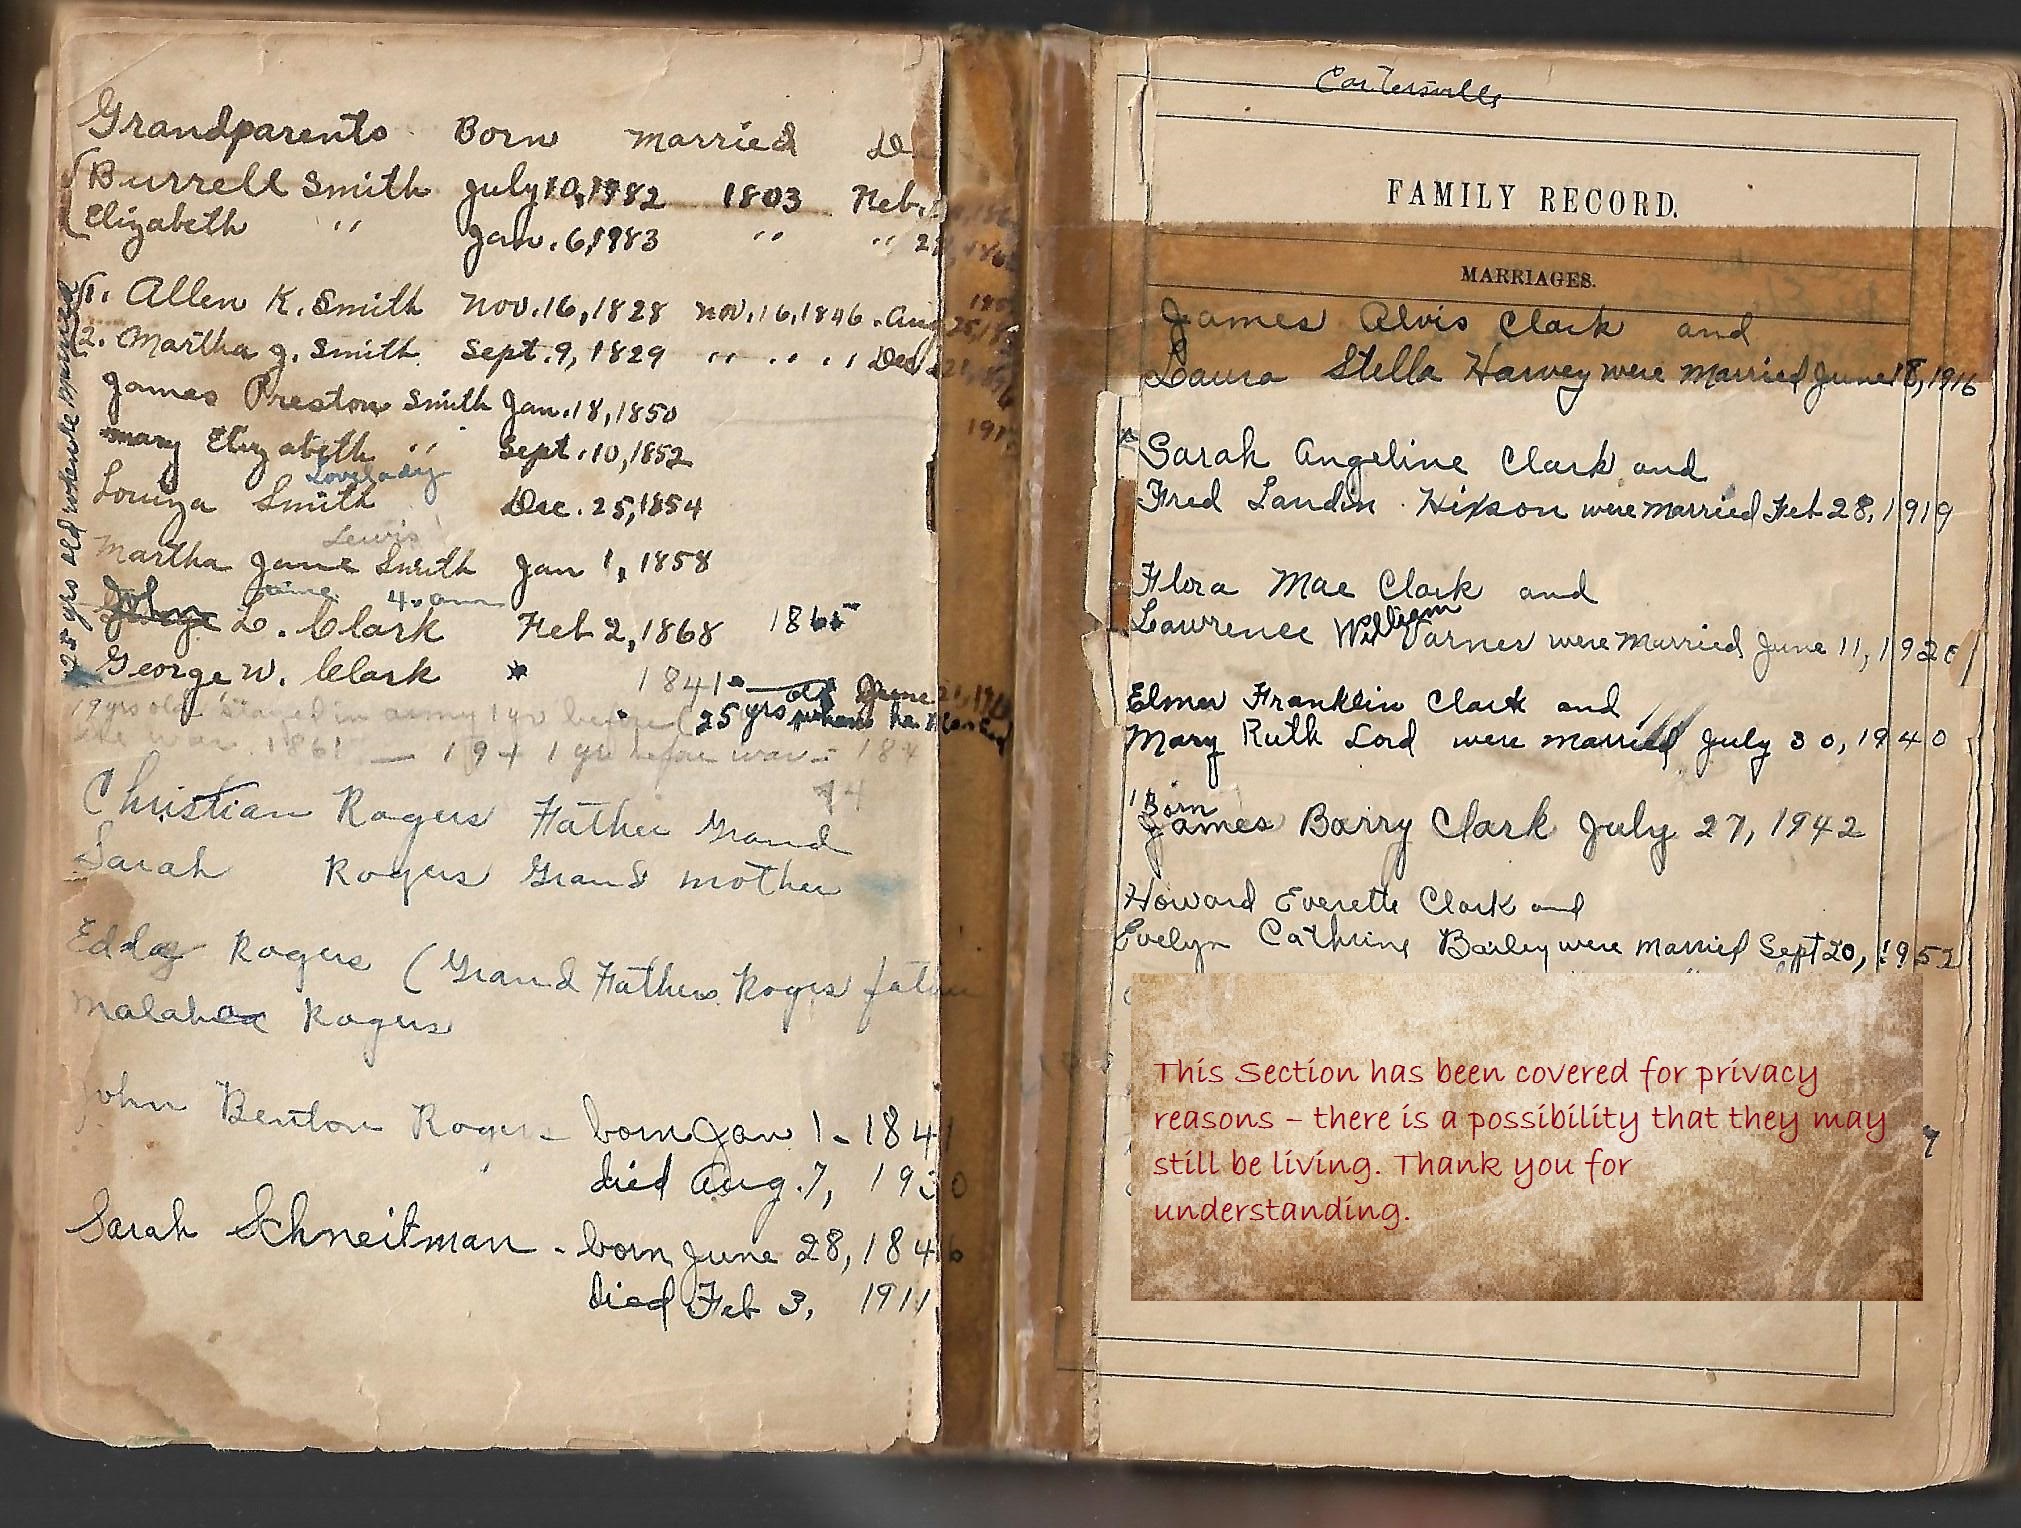 Grandparents Born Married
Burrell Smith July 10, 1982 1803 Feb.
Elizabeth " Jan. 6, 1983 " "
1. Allen K. Smith Nov. 16, 1828 Nov. 16, 1846. Aug 25, 18
2. Martha J. Smith Sept. 9, 1829 " " " " Dec
James Preston Smith Jan. 18, 1850
Mary Elizabeth " Sept. 10, 1852
Lovelady
Louiza Smith Dec. 25, 1854
Lewis
Martha Jane Smith Jan 1, 1858
John L. Clark Feb 2, 1868
George W. Clark * 1841
25 yrs old when he married
19 yrs old stayed in army 1 yr before (25 yrs old when he Married
the war 1861 — 19 + 1 yr before war = 184
44
Christian Rogers Father Grand
Sarah Rogers Grand mother
Rogers (Grand Fathers Rogers father
Rogers
John Benton Rogers born Jan 1 - 184
died Aug. 7, 1930
Sarah Schneitman - born June 28, 1846
died Feb 3, 1911
Cartersville
FAMILY RECORD.
MARRIAGES.
James Alvis Clark and
Laura Stella Harvey were Married June 18, 1916
* Sarah Angeline Clark and
Fred Landin Hixson were Married Feb 28, 1919
Flora Mae Clark and
Lawrence William were Married June 11, 192
Elmer Franklin Clark and
Mary Ruth Lord were married July 30, 1940
Born
James Barry Clark July 27, 1942
Howard Everette Clark and
Evelyn Cathrine Bailey were Married Sept 20, 1952
This Section has been covered for privacy
reasons – there is a possibility that they may
still be living. Thank you for
understanding.